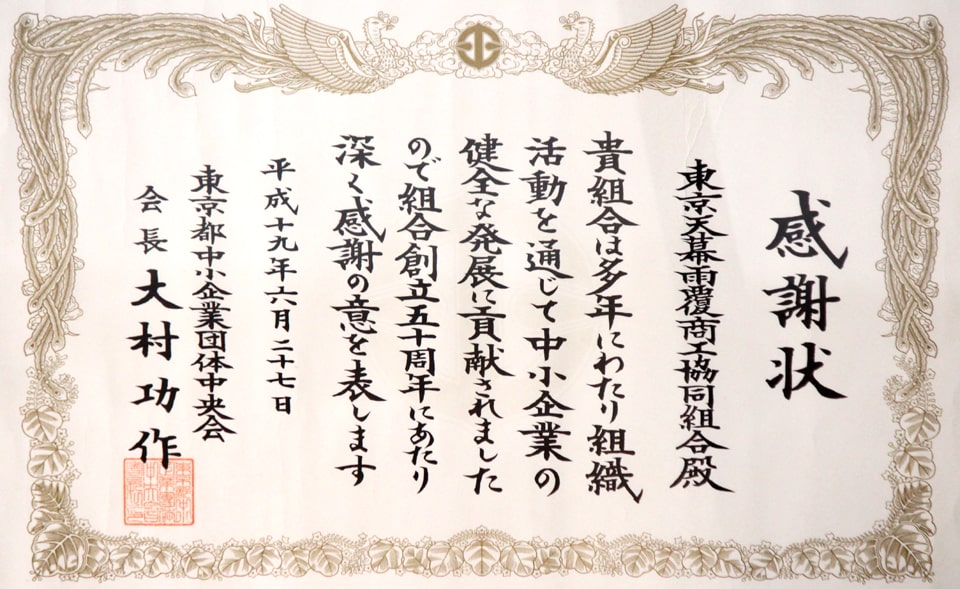 感謝状
東京天幕雨覆商工協同組合殿
貴組合は多年にわたり組織
活動を通じて中小企業の
健全な発展に貢献されました
ので組合創立五十周年にあたり
深く感謝の意を表します
平成十九年六月二十七日
東京都中小企業団体中央会
会長 大村功作